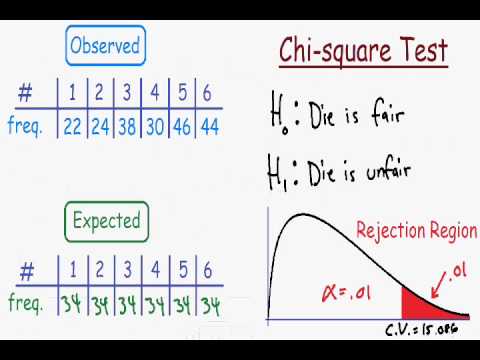 Observed
# 1 2 3 4 5 6
freq. 22 24 38 30 46 44
Expected
# 1 2 3 4 5 6
freq. 34 34 34 34 34 34
Chi-square Test
H₀: Die is fair
H₁: Die is unfair
Rejection Region
α=.01
.01
C.V.=15.086